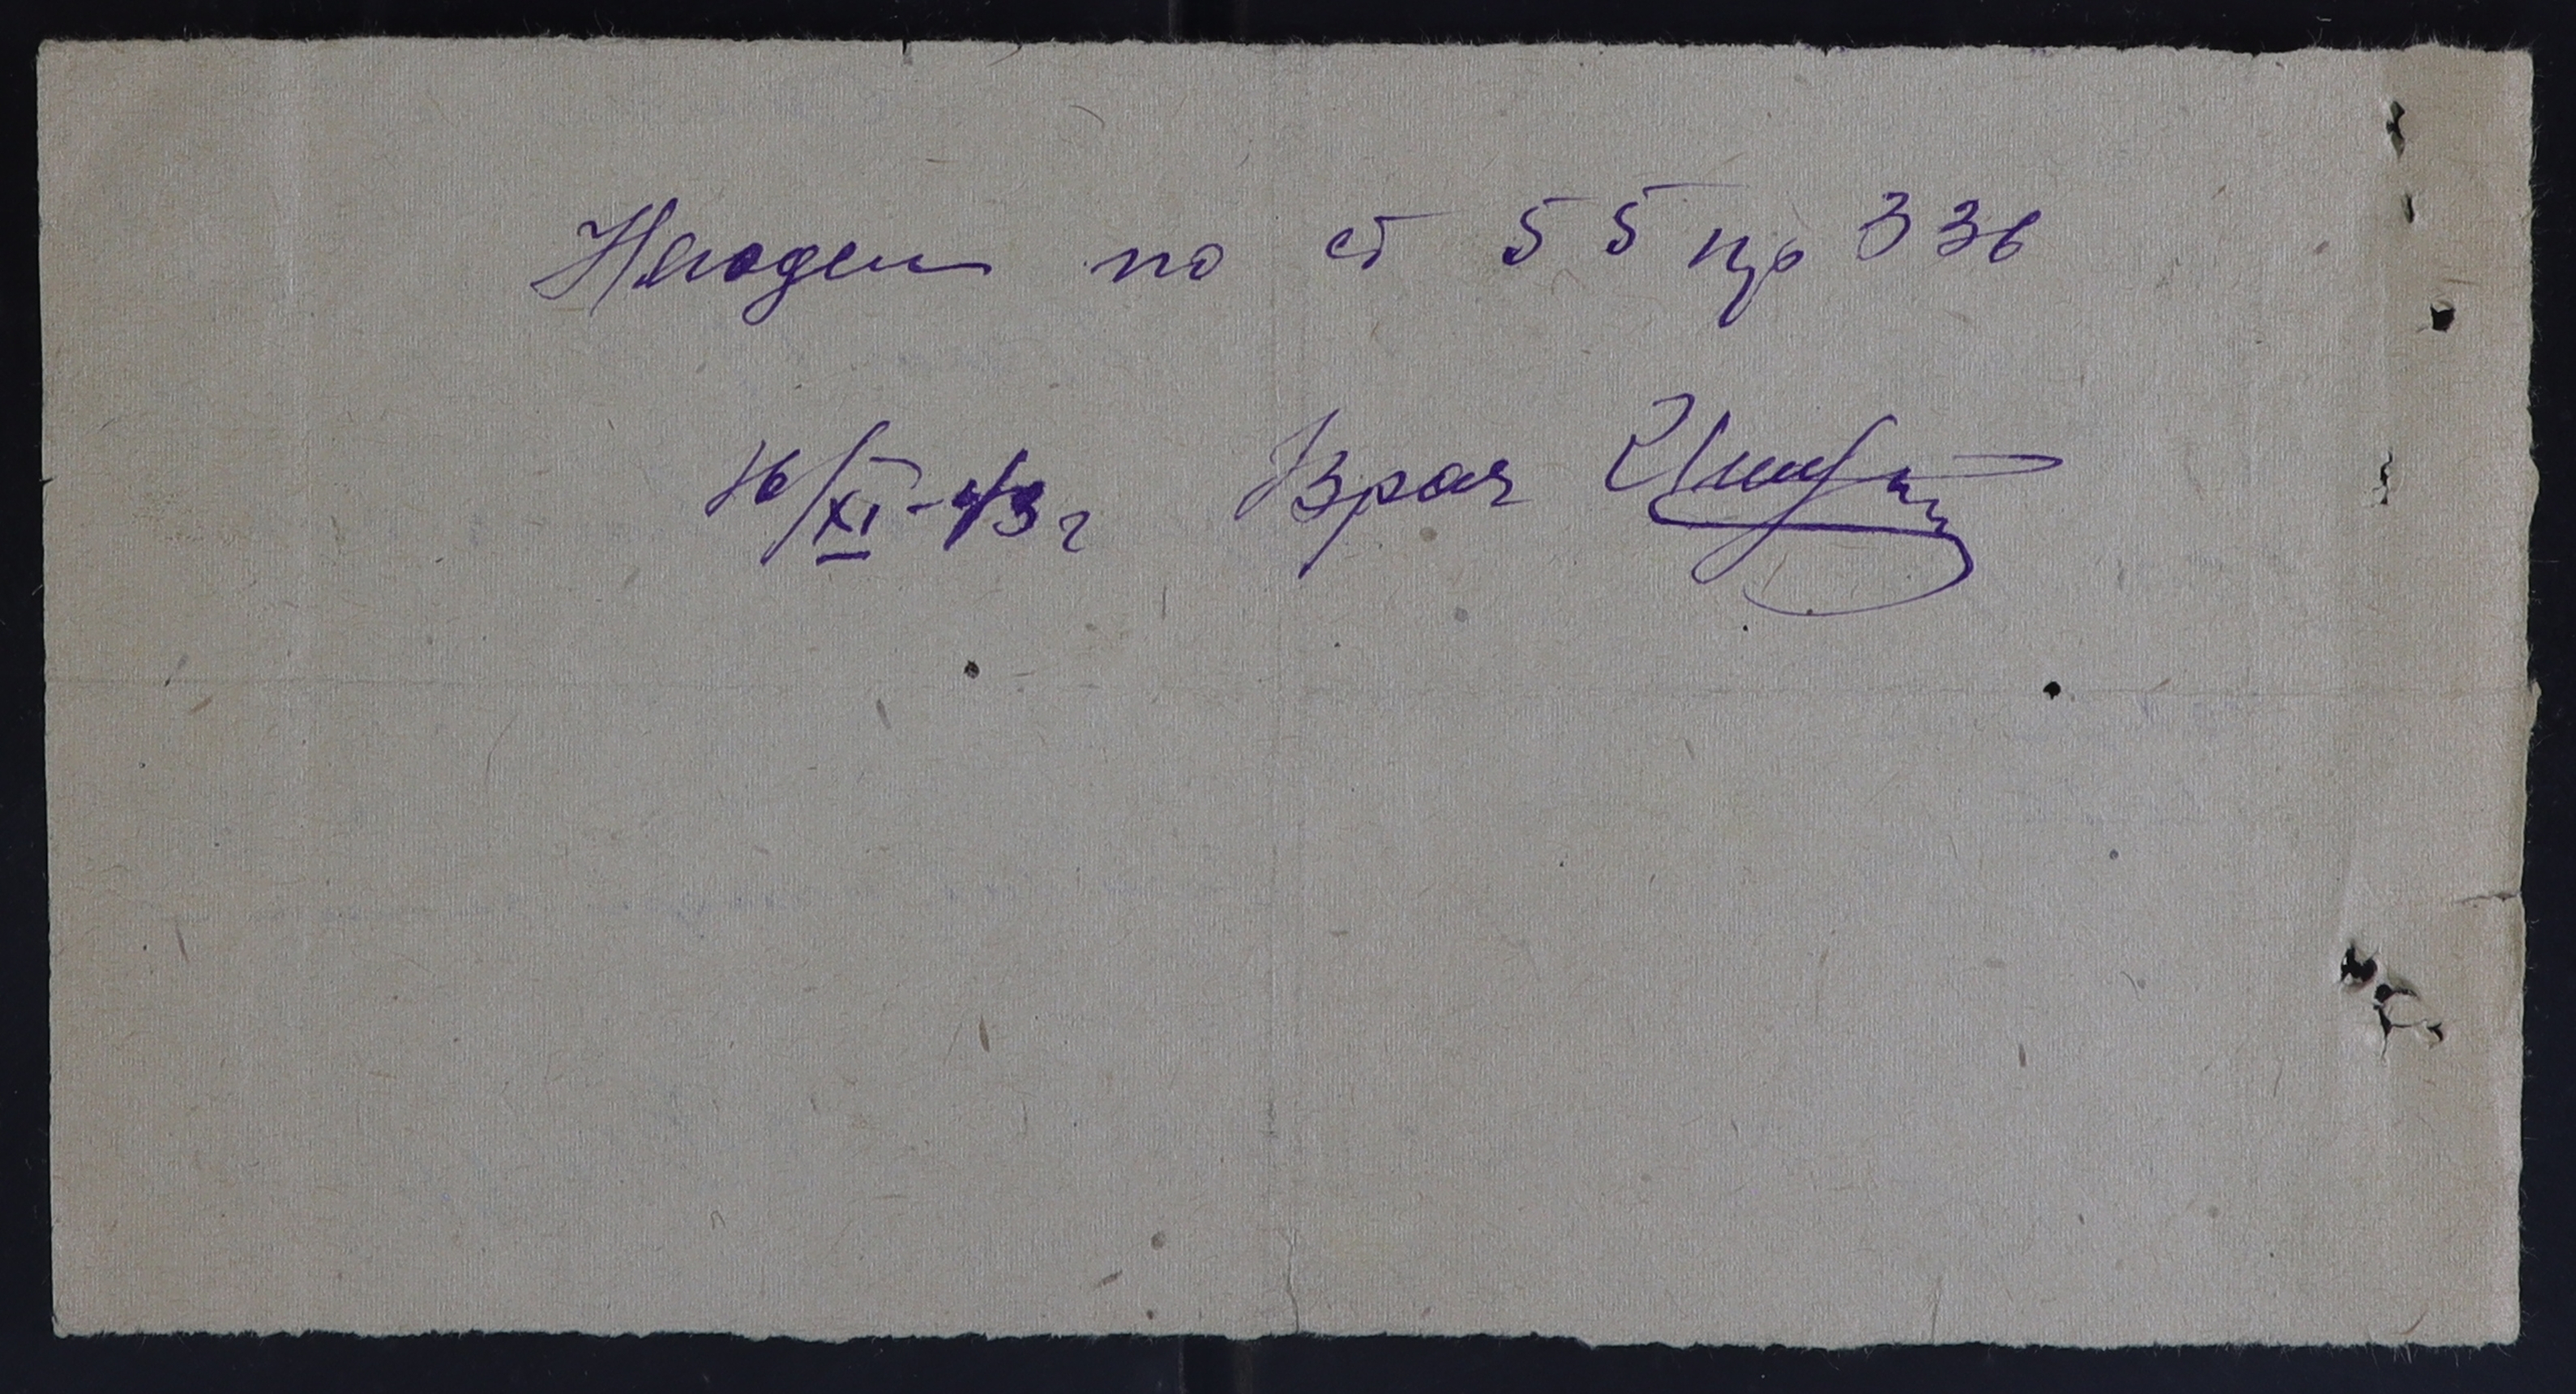 Негоден по ст 55 пр 336
16/XI-43г Врач